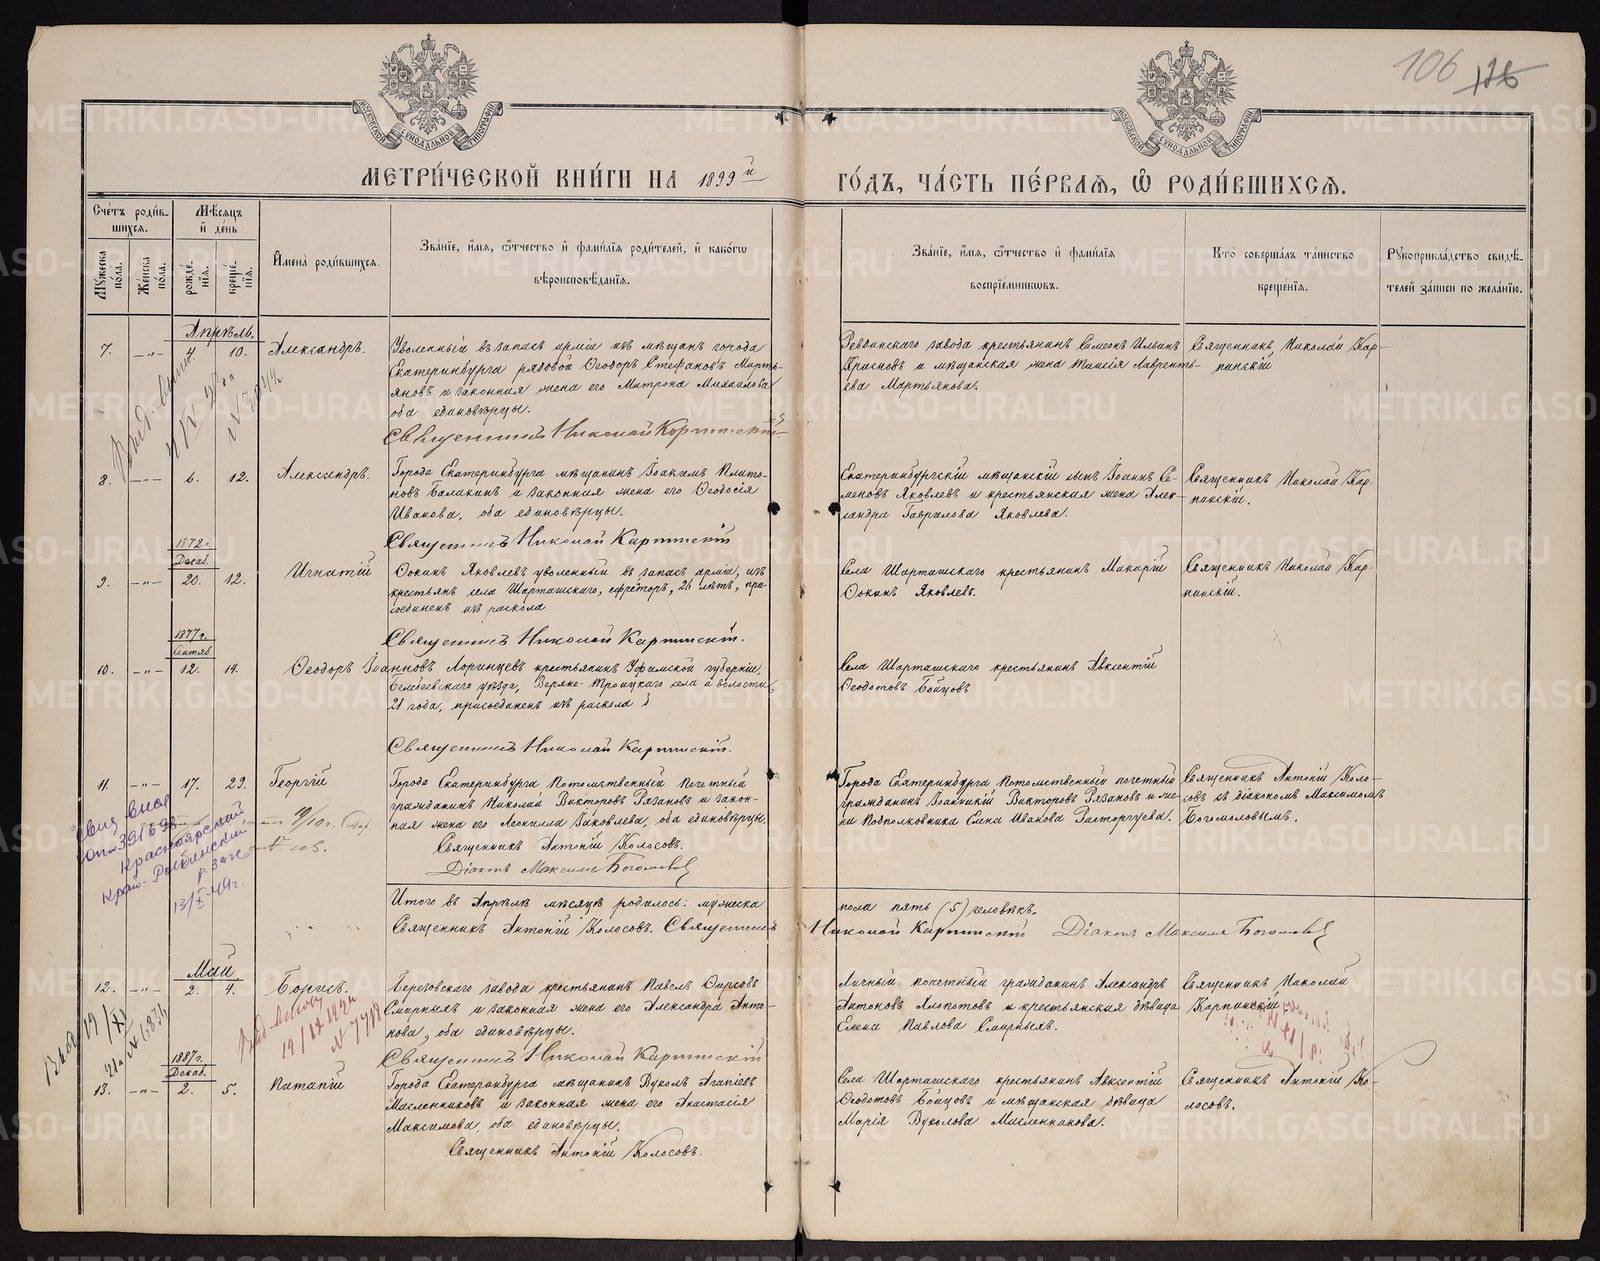 106
МОСКОВСКОЙ СѴНОДАЛЬНОЙ ТИПОГРАФІИ
МОСКОВСКОЙ СѴНОДАЛЬНОЙ ТИПОГРАФІИ
МЕТРИ́ЧЕСКОЙ КНИ́ГИ НА 1899й
ГО́ДЪ, ЧА́СТЬ ПЕ́РВАѦ, Ѡ҆ РОДИ́ВШИХСѦ.
Сче́тъ роди́в-
шихсѧ.
Мѣ́сѧцъ
и҆ де́нь
Мꙋ́жеска
по́ла.
Же́нска
по́ла.
рожде́-
нїѧ.
креще́-
нїѧ.
И҆мена̀ роди́вшихсѧ.
Зва́нїе, и҆́мѧ, ѻ҆́тчество и҆ фами́лїѧ роди́телей, и҆ како́гѡ
вѣроисповѣ́данїѧ.
Зва́нїе, и҆́мѧ, ѻ҆́тчество и҆ фами́лїѧ
воспрїе́мникѡвъ.
Кто̀ соверша́лъ та́инство
креще́нїѧ.
Рꙋкоприкла́дство свидѣ́-
телей за́писи по жела́нїю.
Апрѣль.
7. -"- 4. 10. Александръ.
Уволенный въ запасъ арміи изъ мѣщанъ города
Екатеринбурга рядовой Ѳеодоръ Стефановъ Марть-
яновъ и законная жена его Матрона Михаилова
оба единовѣрцы.
Священникъ Николай Карпинскій
Ревдинскаго завода крестьянинъ Симеонъ Ильинъ
Красновъ и мѣщанская жена Таисія Лавренть-
ева Мартьянова.
Священникъ Николай Кар-
пинскій
8. -"- 6. 12. Александръ.
Города Екатеринбурга мѣщанинъ Іоакимъ Плато-
новъ Балакинъ и законная жена его Ѳеодосія
Иванова, оба единовѣрцы.
Священникъ Николай Карпинскій
Екатеринбургскій мѣщанскій сынъ Іоаннъ Се-
меновъ Яковлевъ и крестьянская жена Алек-
сандра Гаврилова Яковлева.
Священникъ Николай Кар-
пинскій.
1872 г.
Декаб.
9. -"- 20. 12. Игнатій
Ѳокинъ Яковлевъ уволенный въ запасъ арміи, изъ
крестьянъ села Шарташскаго, ефрейторъ, 26 лѣтъ, при-
соединенъ изъ раскола
Священникъ Николай Карпинскій.
Села Шарташскаго крестьянинъ Макарій
Ѳокинъ Яковлевъ.
Священникъ Николай Кар-
пинскій.
1877 г.
Сентяб.
10. -"- 12. 14. Ѳеодоръ Іоанновъ Лоринцевъ крестьянинъ Уфимской губерніи,
Белебеевскаго уѣзда, Верхне-Троицкаго села и волости
21 года, присоединенъ изъ раскола
Священникъ Николай Карпинскій.
Села Шарташскаго крестьянинъ Авксентій
Ѳеодотовъ Бойцовъ
11. -"- 17. 23. Георгій
Города Екатеринбурга Потомственный Почетный
гражданинъ Николай Викторовъ Рязановъ и закон-
ная жена его Леонилла Іаковлева, оба единовѣрцы.
Священникъ Антоній Колосовъ.
Діаконъ Максимъ Богомоловъ
Города Екатеринбурга Потомственный почетный
гражданинъ Іоанникій Викторовъ Рязановъ и же-
на Подполковника Елена Иванова Расторгуева.
Священникъ Антоній Коло-
совъ съ діакономъ Максимомъ
Богомоловымъ.
Красноярский
край.
Итого въ Апрѣлѣ мѣсяцѣ родилось: мужеска
пола пять (5) человѣкъ.
Священникъ Антоній Колосовъ. Священникъ Николай Карпинскій Діаконъ Максимъ Богомоловъ
Май
12. -"- 2. 4. Борисъ.
Березовскаго завода крестьянинъ Павелъ Ѳирсовъ
Смирныхъ и законная жена его Александра Анто-
нова, оба единовѣрцы.
Священникъ Николай Карпинскій
Личный почетный гражданинъ Александръ
Антоновъ Хлопотовъ и крестьянская дѣвица
Елена Павлова Смирныхъ.
Священникъ Николай
Карпинскій
1887 г.
Декаб.
13. -"- 2. 5. Патапій
Города Екатеринбурга мѣщанинъ Вуколъ Агапіевъ
Масленниковъ и законная жена его Анастасія
Максимова, оба единовѣрцы.
Священникъ Антоній Колосовъ.
Села Шарташскаго крестьянинъ Авксентій
Ѳеодотовъ Бойцовъ и мѣщанская дѣвица
Марія Вуколова Масленникова.
Священникъ Антоній Ко-
лосовъ.
METRIKI.GASO-URAL.RU